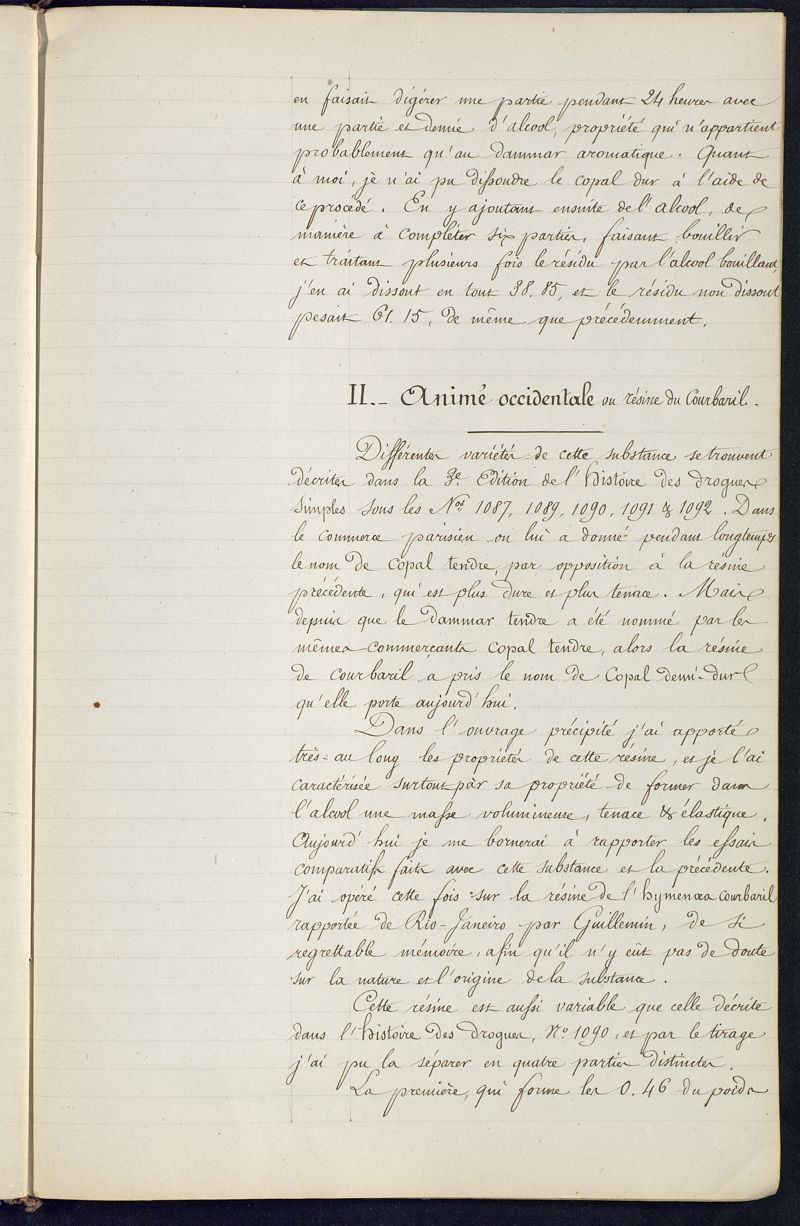 en faisait digérer une partie pendant 24 heures avec
une partie et demie d'alcool, propriété qui n'appartient
probablement qu'au dammar aromatique. Quant
à moi, je n'ai pu dissoudre le copal dur à l'aide de
ce procédé. En y ajoutant ensuite de l'alcool, de
manière à compléter six parties, faisant bouillir
et traitant plusieurs fois le résidu par l'alcool bouillant,
j'en ai dissout en tout 38.85, et le résidu non dissout
pesait 61.15, de même que précédemment.
II.- Animé occidentale ou résine du Courbaril.
Différentes variétés de cette substance se trouvent
décrites dans la 3e. Edition de l'histoire des drogues
simples sous les Nos. 1087, 1089, 1090, 1091 & 1092. Dans
le commerce parisien on lui a donné pendant longtemps
le nom de Copal tendre, par opposition à la résine
précédente, qui est plus dure et plus tenace. Mais
depuis que le Dammar tendre a été nommé par les
mêmes commerçants copal tendre, alors la résine
de courbaril a pris le nom de Copal demi-dur
qu'elle porte aujourd'hui.
Dans l'ouvrage précipité j'ai apporté
très-au long les propriétés de cette résine, et je l'ai
caractérisée surtout par sa propriété de former dans
l'alcool une masse volumineuse, tenace & élastique.
Aujourd'hui je me bornerai à rapporter les essais
comparatifs faits avec cette substance et la précédente.
J'ai opéré cette fois sur la résine de l'hymenœa courbaril
rapportée de Rio-Janeiro par Guillemin, de si
regrettable mémoire, afin qu'il n'y eût pas de doute
sur la nature et l'origine de la substance.
Cette résine est aussi variable que celle décrite
dans l'histoire des drogues, No. 1090, et par le tirage
j'ai pu la séparer en quatre parties distinctes.
La première, qui forme les 0.46 du poids